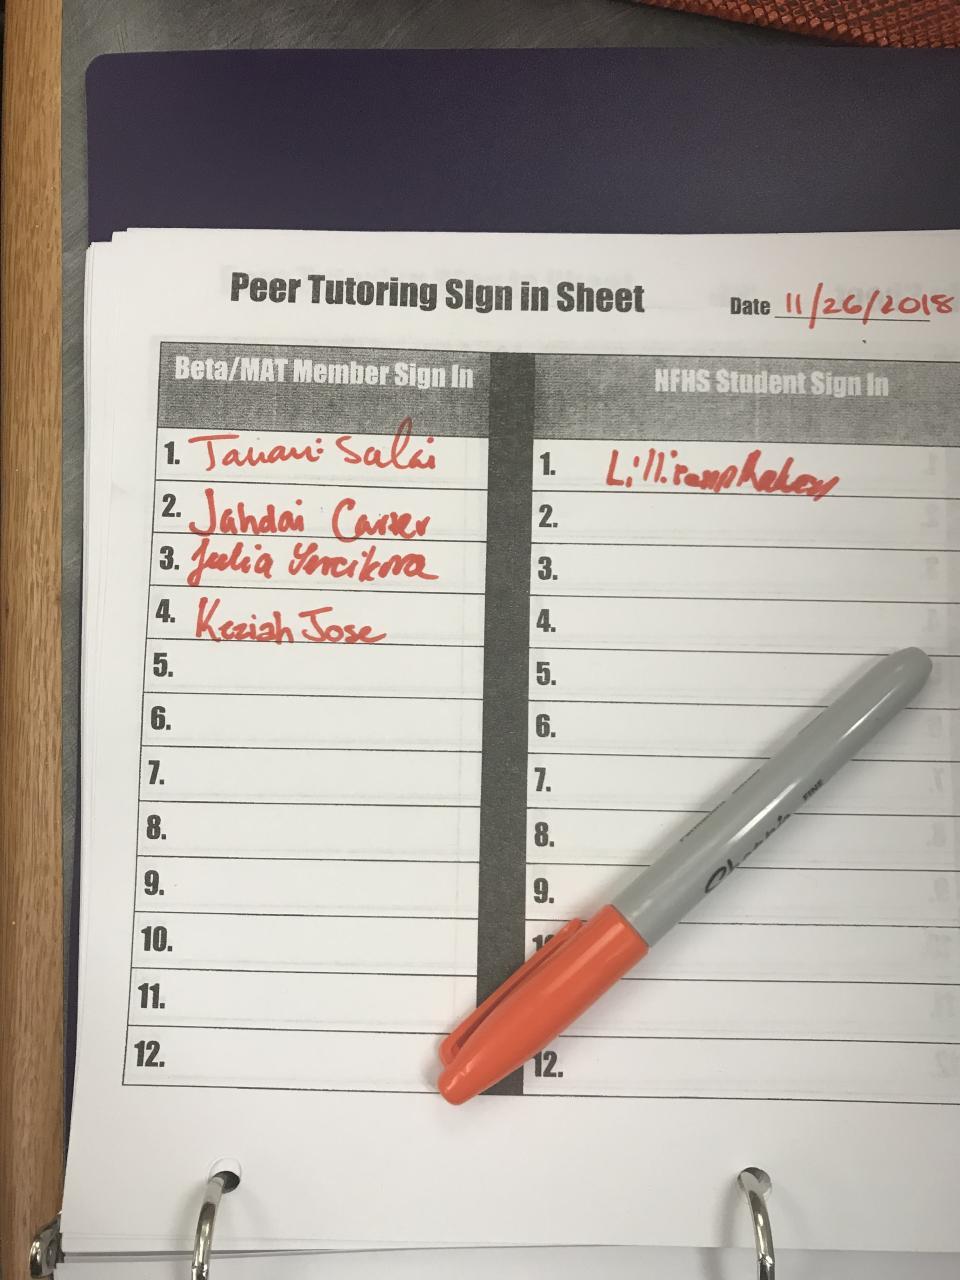 Peer Tutoring SIgn in Sheet
Date 11/26/2018
Beta/MAT Member Sign In
NFHS Student Sign In
1. Tanavi Salvi
2. Jahdai Carser
3. Julia
4. Keziah Jose
5.
6.
7.
8.
9.
10.
11.
12.
1.
2.
3.
4.
5.
6.
7.
8.
9.
12.
Sharpie
FINE